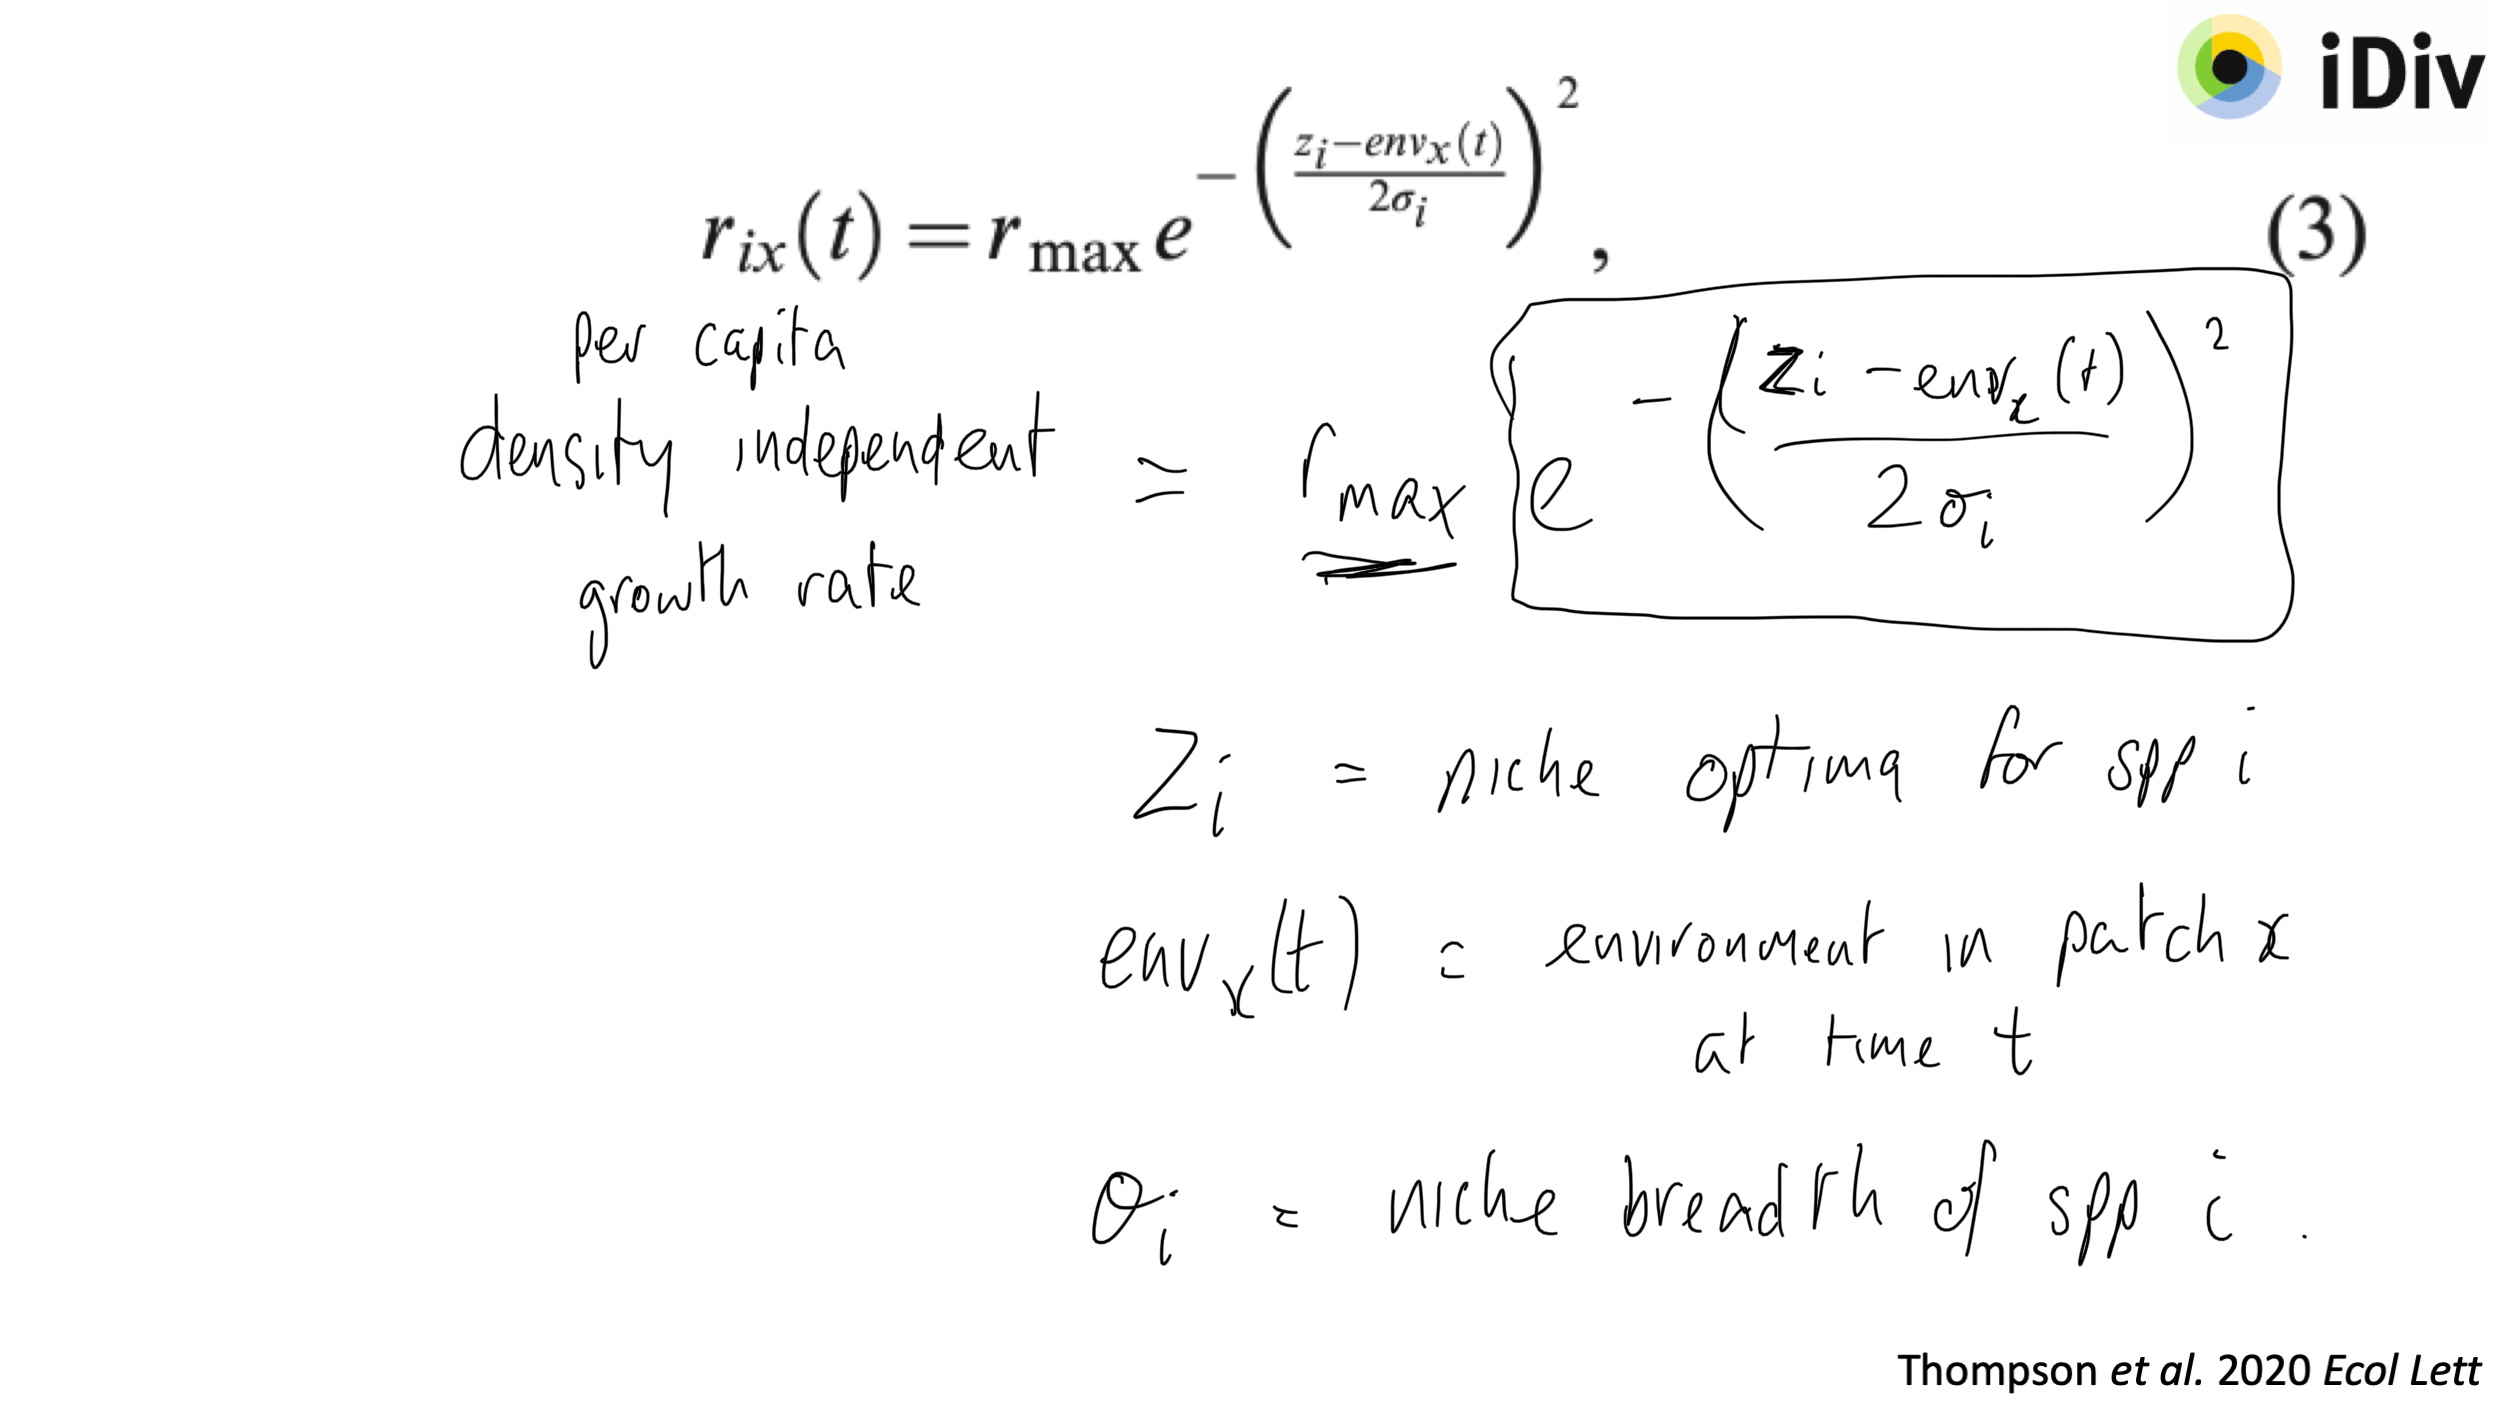 iDiv
r_{ix}(t) = r_{max} e^{-\left(\frac{z_i - env_x(t)}{2\sigma_i}\right)^2}, (3)
per capita
density independent = r_{max} e^{-\left(\frac{z_i - env_x(t)}{2\sigma_i}\right)^2}
growth rate
Z_i = niche optima for spp i
env_x(t) = environment in patch x
at time t
σ_i = niche breadth of spp i.
Thompson et al. 2020 Ecol Lett